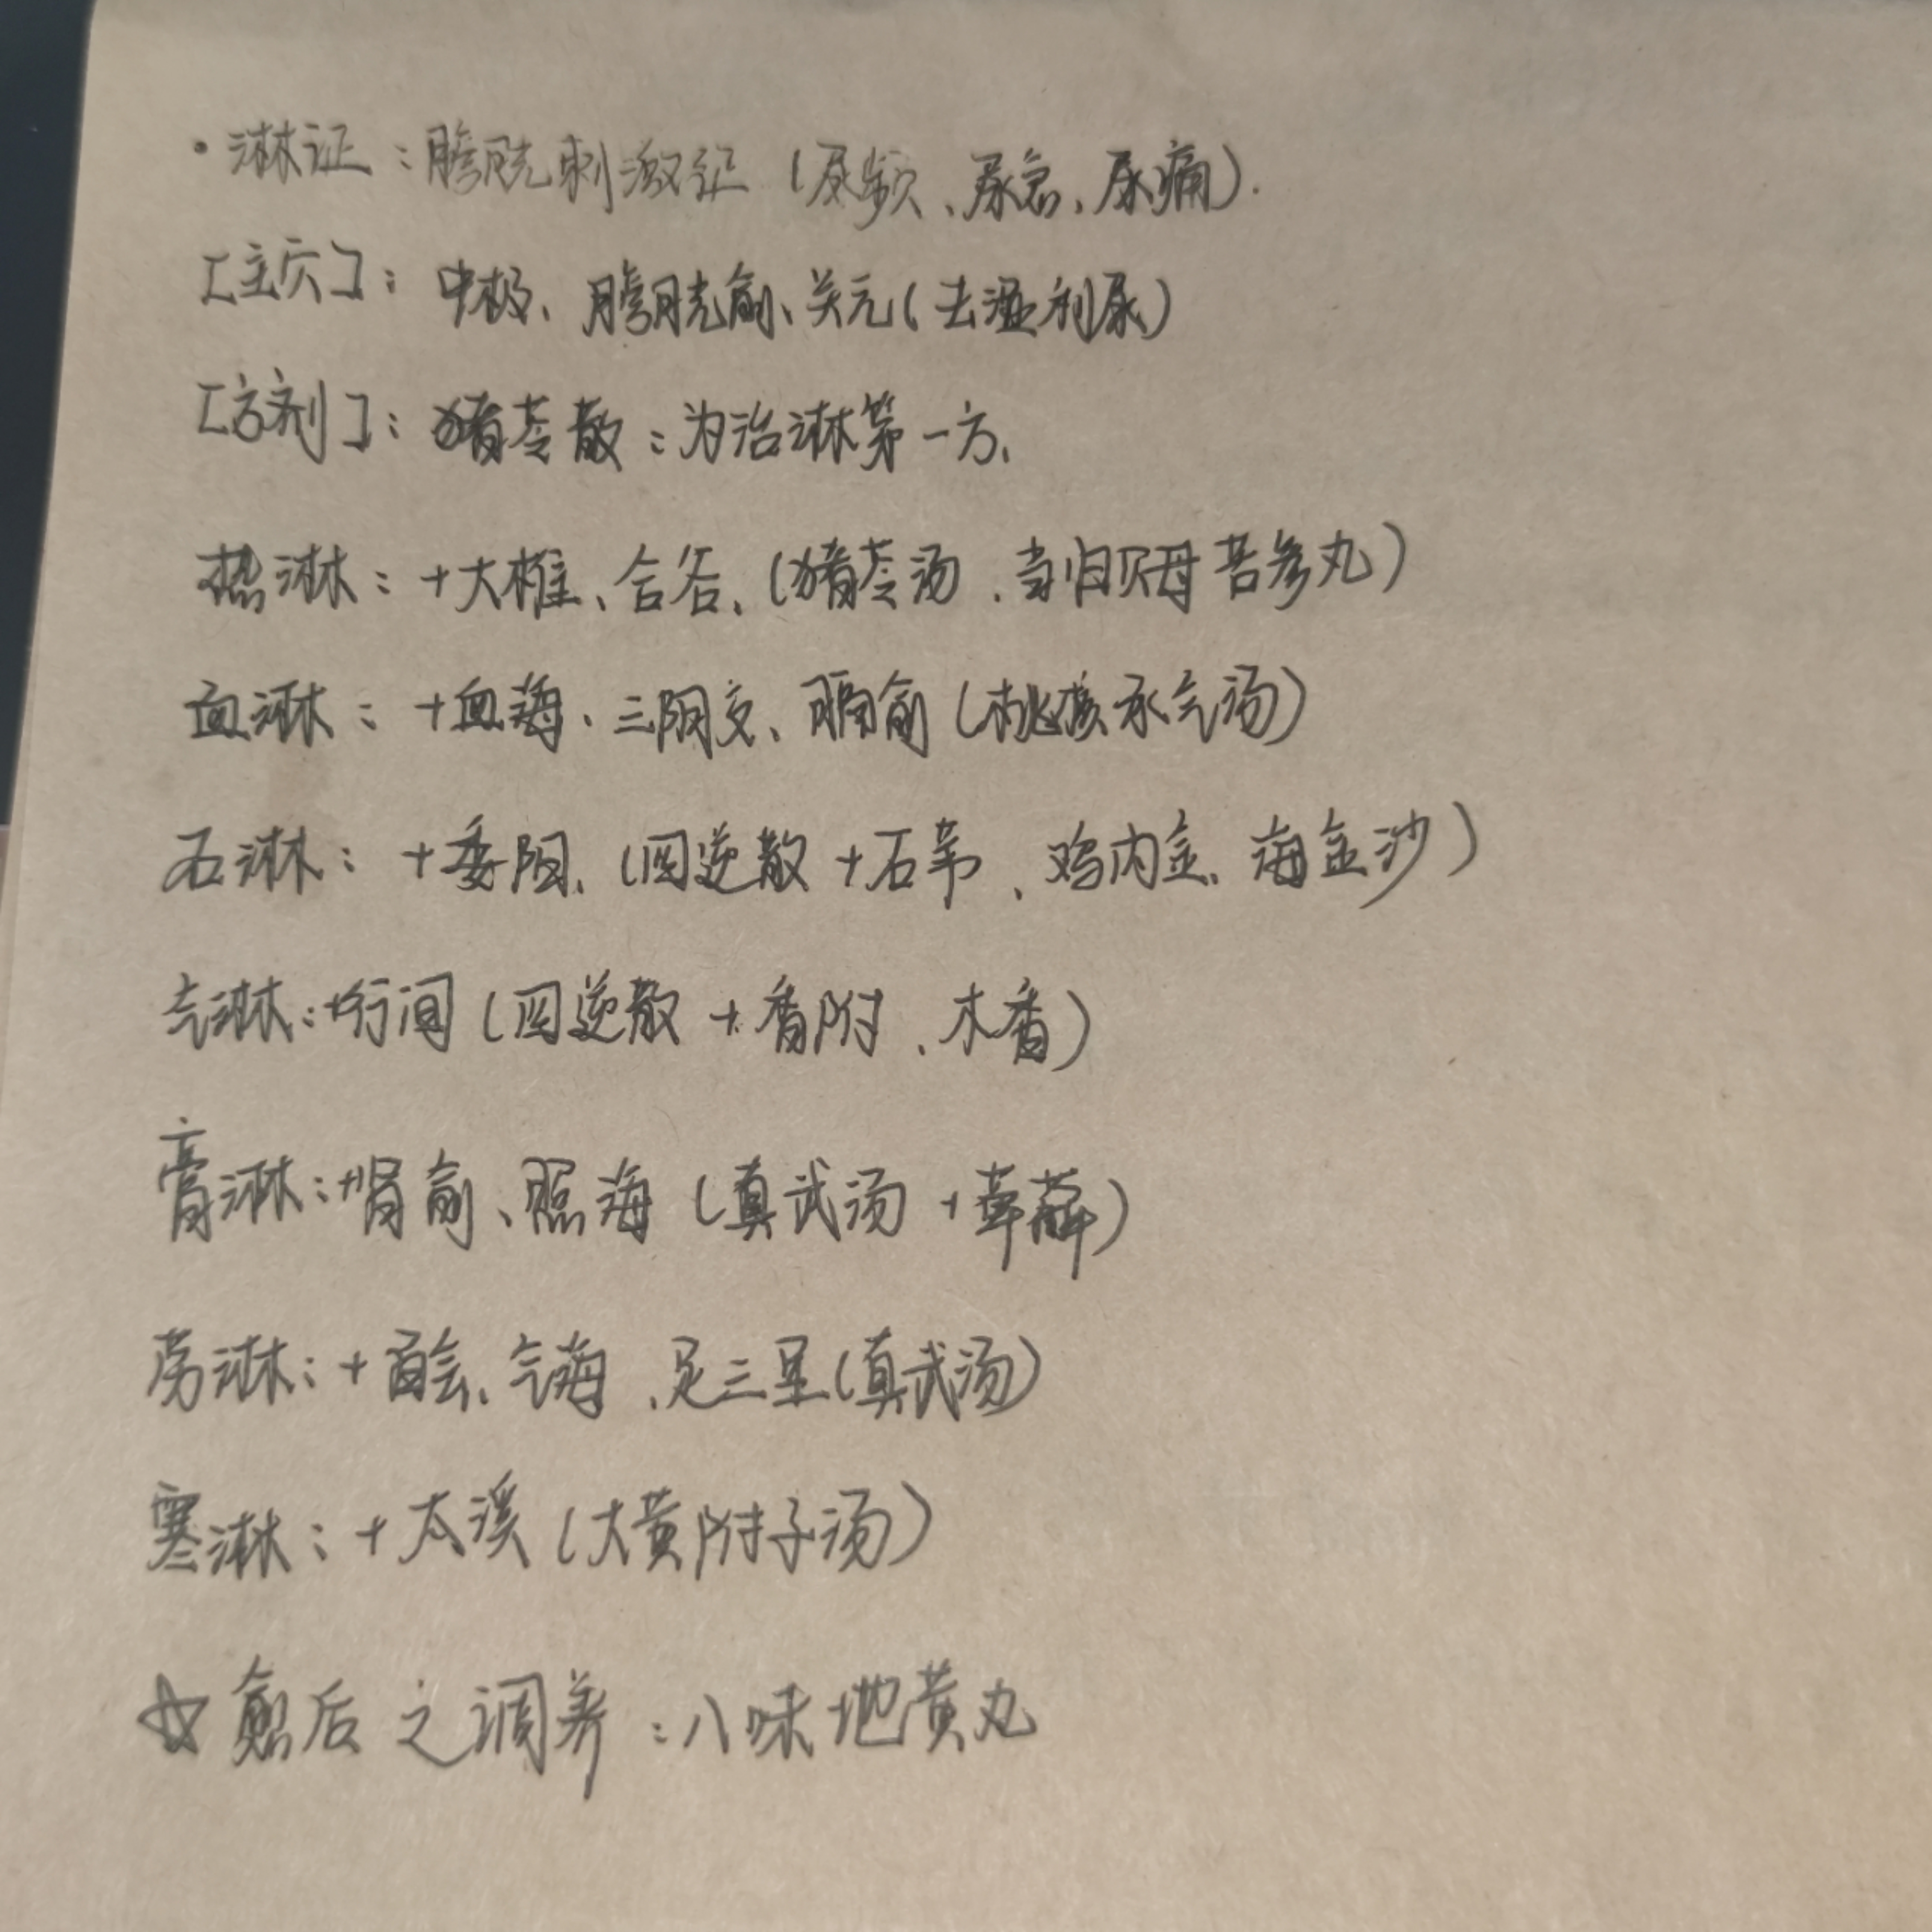 ·淋证：膀胱刺激征（尿频、尿急、尿痛）.
[主穴]：中极、膀胱俞、关元（去湿利尿）
[方剂]：猪苓散：为治淋第一方、
热淋：+大椎、合谷、（猪苓汤、当归贝母苦参丸）
血淋：+血海、三阴交、膈俞（桃核承气汤）
石淋：+委阳、（四逆散+石苇、鸡内金、海金沙）
气淋：+行间（四逆散+香附、木香）
膏淋：+肾俞、照海（真武汤+萆薢）
劳淋：+百会、气海、足三里（真武汤）
寒淋：+太溪（大黄附子汤）
☆愈后之调养：八味地黄丸